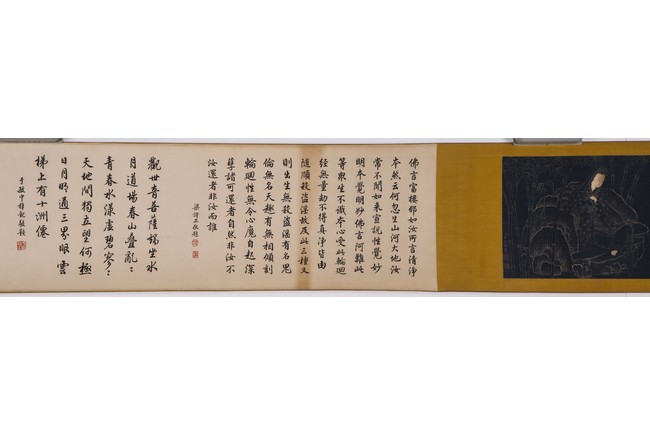 佛言富樓那如汝所言清淨
本然云何忽生山河大地汝
常不聞如来宣說性覺妙
明本覺明妙佛言阿難此
等衆生不識本心受此輪迴
經無量劫不得真淨皆由
隨順殺盜滛故反此三種又
則出生無殺盜滛有名鬼
倫無名天趣有無相傾剏
輪迴性無令心魔自起深
孽諸可還者自然非汝不
汝還者非汝而誰
梁詩正敬題
觀世音菩薩端坐水
月道場春山疊亂〻
青春水漾虛碧寥〻
天地間獨立望何極
日月明通三界眼雲
梯上有十洲僊
于敏中拜觀敬題